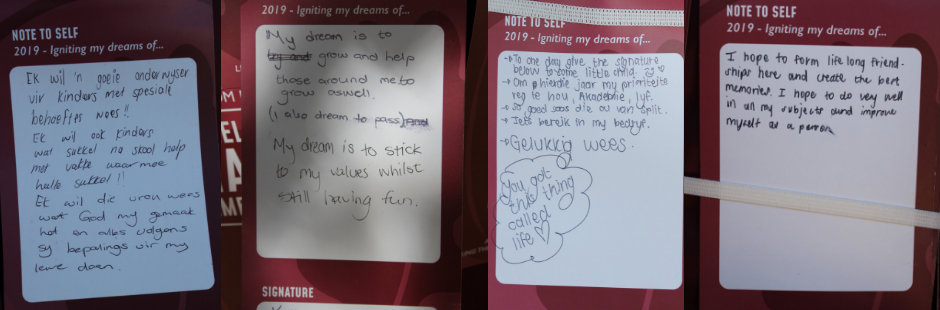 NOTE TO SELF
2019 - Igniting my dreams of...
Ek wil 'n goeie onderwyser
vir kinders met spesiale
behoeftes wees!!
Ek wil ook kinders
wat sukkel na skool help
met vakke waarmee
hulle sukkel!!
Ek wil die vrou wees
wat God my gemaak
het en alles volgens
sy bepalings vir my
lewe doen.
2019 - Igniting my dreams of...
My dream is to
grow and help
those around me to
grow aswell.
(I also dream to pass)
My dream is to stick
to my values whilst
still having fun.
SIGNATURE
NOTE TO SELF
2019 - Igniting my dreams of...
→ To one day give the signature
below to some little child.
→ Om hierdie jaar my prioriteite
reg te hou, Akademie, lyf.
→ So goed soos die ou van split.
→ Iets bereik in my bedryf.
→ Gelukkig wees.
You got
this thing
called
life ♡
NOTE TO SELF
2019 - Igniting my dreams of...
I hope to form life long friend-
ships here and create the best
memories. I hope to do very well
in all my subjects and improve
myself as a person